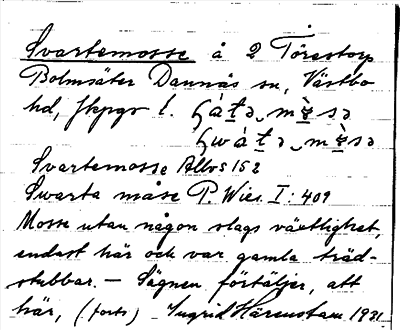 Svartemosse å 2 Törestorp
Bolmsäter Dannäs sn, Västbo
hd, Jkpgs l.
Svartemosse AllvS 152
Swarta måse P. Wies. I: 409
Mosse utan någon slags växtlighet,
endast här och var gamla träd-
stubbar. — Sägnen förtäljer, att
här, (forts) Ingrid Härenstam 1931